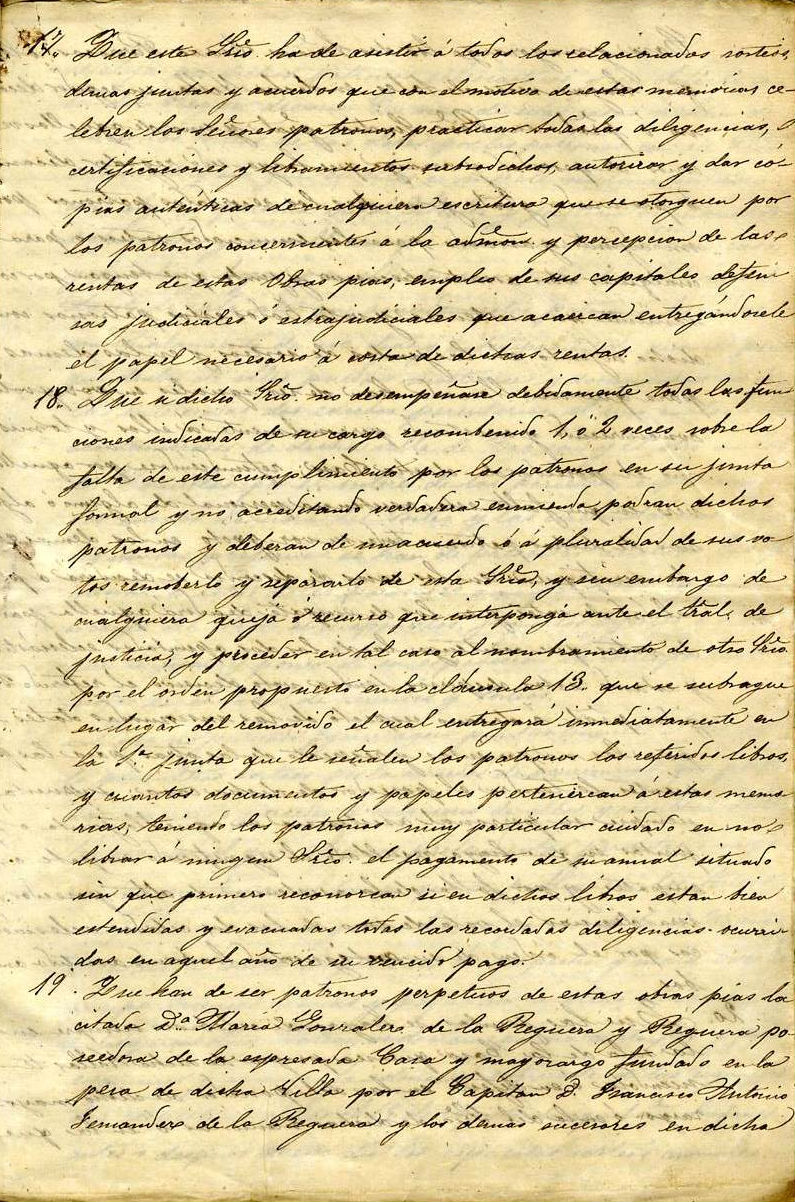 17. Que este Srio. ha de asistir á todos los relacionados sorteos,
demas juntas y acuerdos que con el motivo de estas memorias ce-
lebren los Señores patronos, practicar todas las diligencias,
certificaciones y libramientos susodichos, autorizar y dar có-
pias auténticas de cualquiera escritura que se otorguen por
los patronos concernientes á la admon. y percepcion de las
rentas de estas Obras pias, empleo de sus capitales defen
sas judiciales ó estrajudiciales que acaezcan entregándosele
el papel necesario á costa de dichas rentas.
18. Que si dicho Srio. no desempeñase debidamente todas las fun
ciones indicadas de su cargo recombenido 1, ó 2 veces sobre la
falta de este cumplimiento por los patronos en su junta
formal y no acreditando verdadera enmienda podran dichos
patronos y deberan de un acuerdo ó á pluralidad de sus vo
tos remoberlo y separarlo de esta Sria, y sin embargo de
cualquiera queja ó recurso que interponga ante el tral. de
justicia, y proceder en tal caso al nombramiento de otro Srio.
por el orden propuesto en la cláusula 13. que se subrague
en lugar del removido el cual entregará inmediatamente en
la 1.ª junta que le señalen los patronos los referidos libros,
y cuantos documentos y papeles pertenezcan á estas memo
rias, teniendo los patronos muy particular cuidado en no
librar á ningun Srio. el pagamento de su anual situado
sin que primero reconozcan si en dichos libros estan bien
estendidas y evacuadas todas las recordadas diligencias ocurri-
das en aquel año de su vencido pago.
19. Que han de ser patronos perpetuos de estas obras pias la
citada D.ª Maria Gonzalez de la Reguera y Reguera po
seedora de la espresada Casa y mayorazgo fundado en la
pera de dicha Villa por el Capitan D. Francisco Antonio
Fernandez de la Reguera y los demas sucesores en dicha